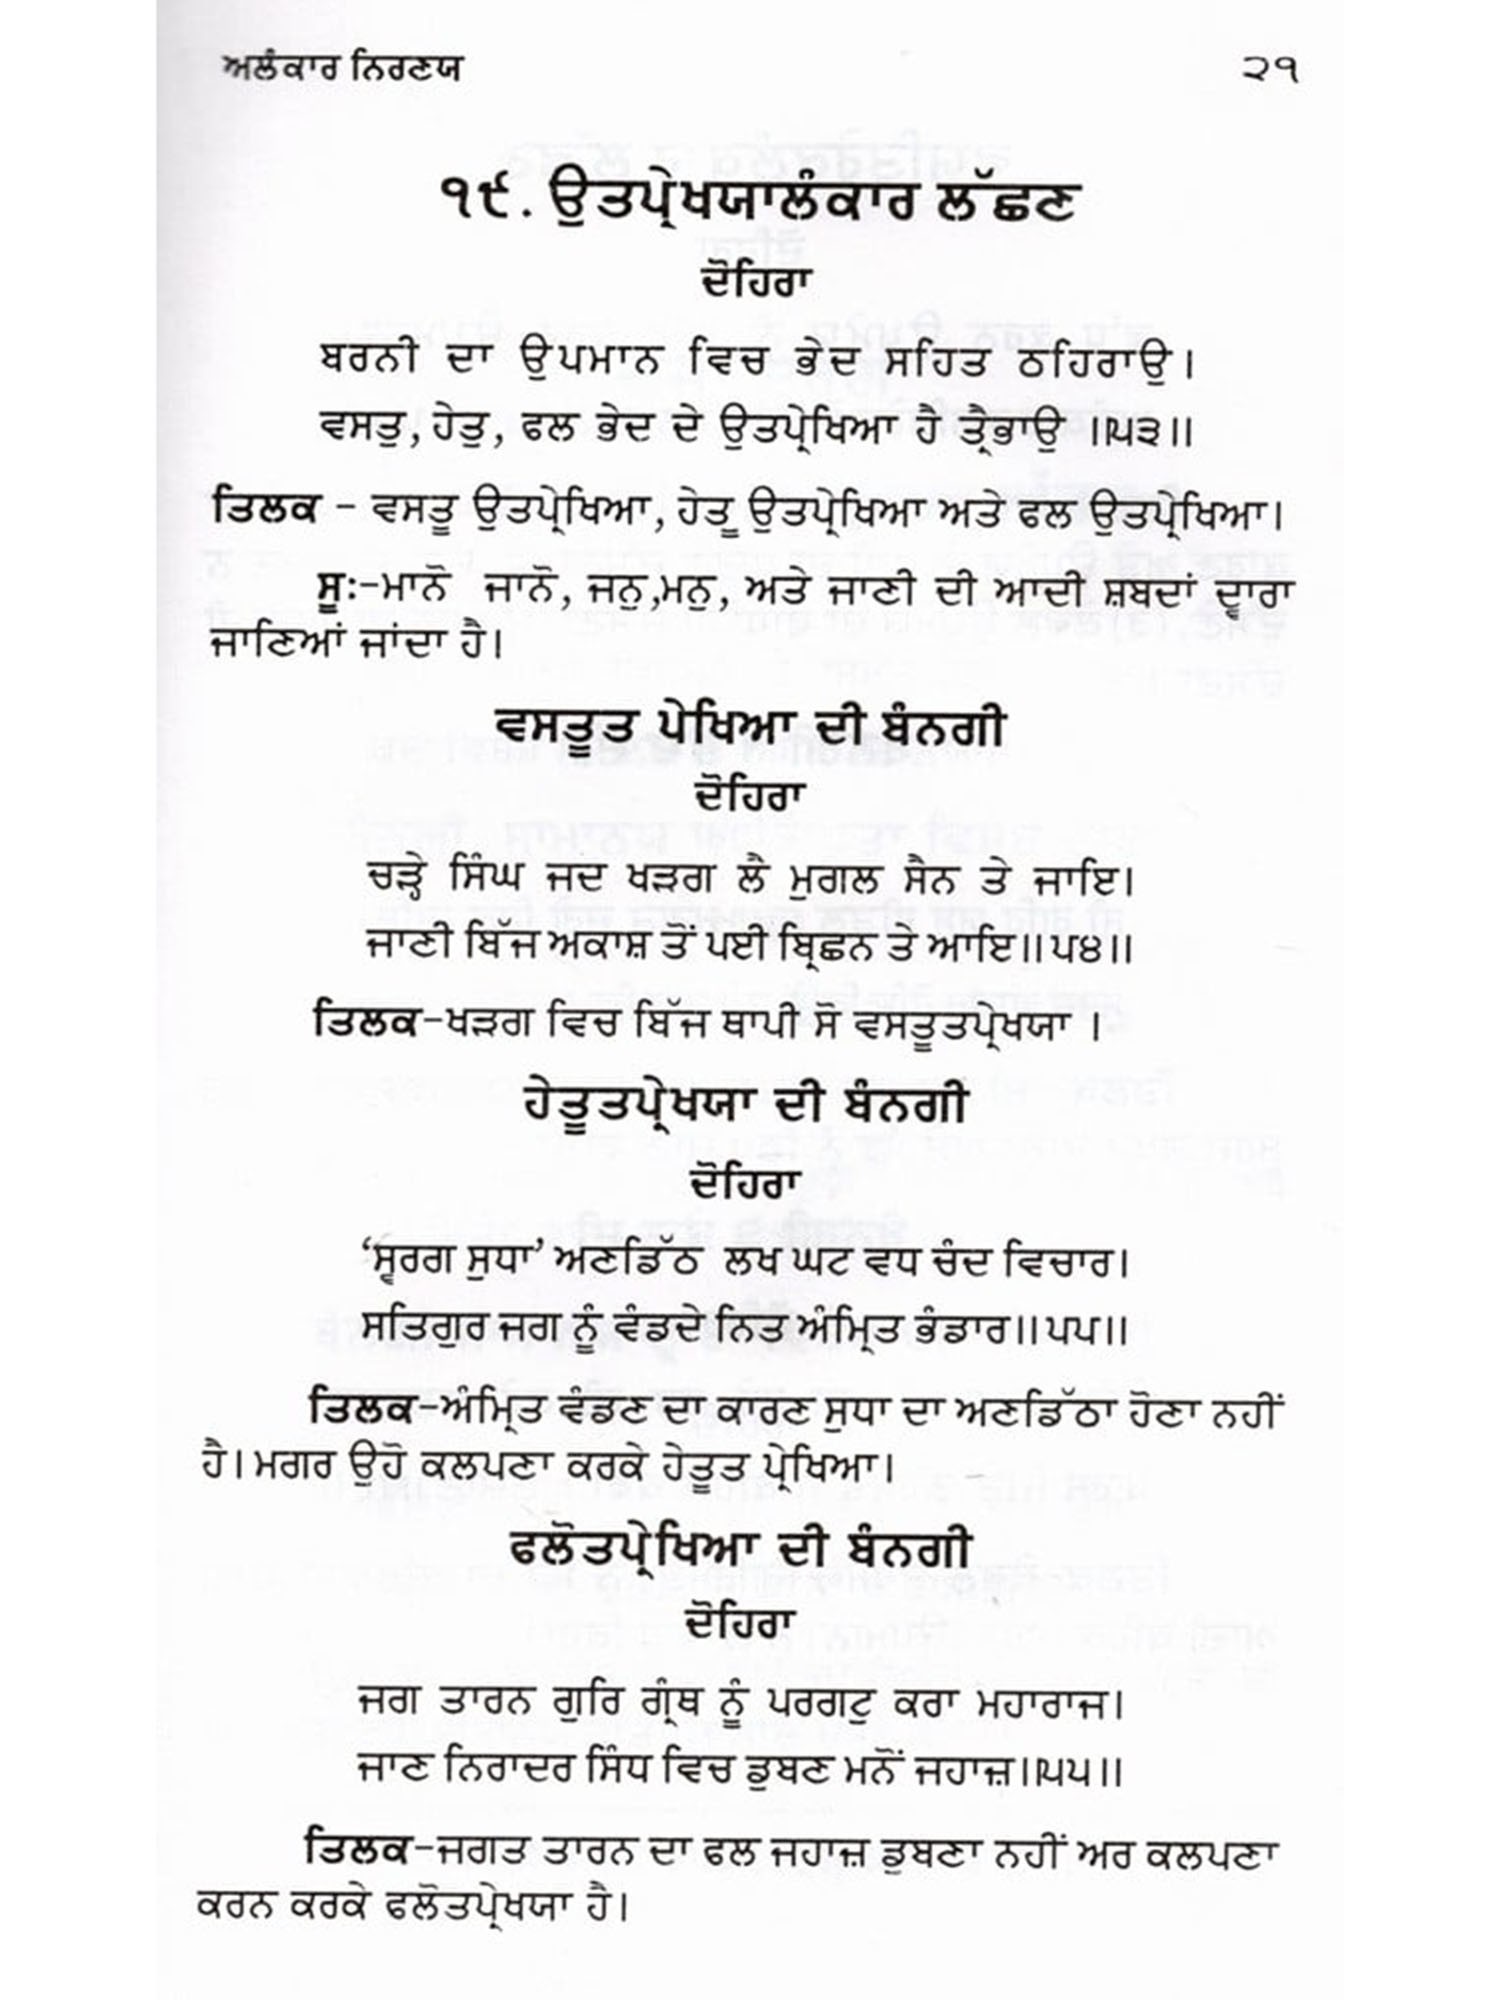 ਅਲੰਕਾਰ ਨਿਰਣਯ ੨੧
੧੯. ਉਤਪ੍ਰੇਖਯਾਲੰਕਾਰ ਲੱਛਣ
ਦੋਹਿਰਾ
ਬਰਨੀ ਦਾ ਉਪਮਾਨ ਵਿਚ ਭੇਦ ਸਹਿਤ ਠਹਿਰਾਉ।
ਵਸਤੁ, ਹੇਤੁ, ਫਲ ਭੇਦ ਦੇ ਉਤਪ੍ਰੇਖਿਆ ਹੈ ਤ੍ਰੈਭਾਉ ॥੫੩॥
ਤਿਲਕ - ਵਸਤੂ ਉਤਪ੍ਰੇਖਿਆ, ਹੇਤੂ ਉਤਪ੍ਰੇਖਿਆ ਅਤੇ ਫਲ ਉਤਪ੍ਰੇਖਿਆ।
ਸੂ:-ਮਾਨੋ ਜਾਨੋ, ਜਨੁ,ਮਨੁ, ਅਤੇ ਜਾਣੀ ਦੀ ਆਦੀ ਸ਼ਬਦਾਂ ਦ੍ਵਾਰਾ
ਜਾਣਿਆਂ ਜਾਂਦਾ ਹੈ।
ਵਸਤੂਤ ਪੇਖਿਆ ਦੀ ਬੰਨਗੀ
ਦੋਹਿਰਾ
ਚੜ੍ਹੇ ਸਿੰਘ ਜਦ ਖੜਗ ਲੈ ਮੁਗਲ ਸੈਨ ਤੇ ਜਾਇ।
ਜਾਣੀ ਬਿੱਜ ਅਕਾਸ਼ ਤੋਂ ਪਈ ਬ੍ਰਿਛਨ ਤੇ ਆਇ॥੫੪॥
ਤਿਲਕ-ਖੜਗ ਵਿਚ ਬਿੱਜ ਥਾਪੀ ਸੋ ਵਸਤੂਤਪ੍ਰੇਖਯਾ ।
ਹੇਤੂਤਪ੍ਰੇਖਯਾ ਦੀ ਬੰਨਗੀ
ਦੋਹਿਰਾ
‘ਸ੍ਵਰਗ ਸੁਧਾ’ ਅਣਡਿੱਠ ਲਖ ਘਟ ਵਧ ਚੰਦ ਵਿਚਾਰ।
ਸਤਿਗੁਰ ਜਗ ਨੂੰ ਵੰਡਦੇ ਨਿਤ ਅੰਮ੍ਰਿਤ ਭੰਡਾਰ॥੫੫॥
ਤਿਲਕ-ਅੰਮ੍ਰਿਤ ਵੰਡਣ ਦਾ ਕਾਰਣ ਸੁਧਾ ਦਾ ਅਣਡਿੱਠਾ ਹੋਣਾ ਨਹੀਂ
ਹੈ। ਮਗਰ ਉਹੋ ਕਲਪਣਾ ਕਰਕੇ ਹੇਤੂਤ ਪ੍ਰੇਖਿਆ।
ਫਲੋਤਪ੍ਰੇਖਿਆ ਦੀ ਬੰਨਗੀ
ਦੋਹਿਰਾ
ਜਗ ਤਾਰਨ ਗੁਰਿ ਗ੍ਰੰਥ ਨੂੰ ਪਰਗਟੁ ਕਰਾ ਮਹਾਰਾਜ।
ਜਾਣ ਨਿਰਾਦਰ ਸਿੰਧ ਵਿਚ ਡੁਬਣ ਮਨੋਂ ਜਹਾਜ਼।॥੫੫॥
ਤਿਲਕ-ਜਗਤ ਤਾਰਨ ਦਾ ਫਲ ਜਹਾਜ਼ ਡੁਬਣਾ ਨਹੀਂ ਅਰ ਕਲਪਣਾ
ਕਰਨ ਕਰਕੇ ਫਲੋਤਪ੍ਰੇਖਯਾ ਹੈ।